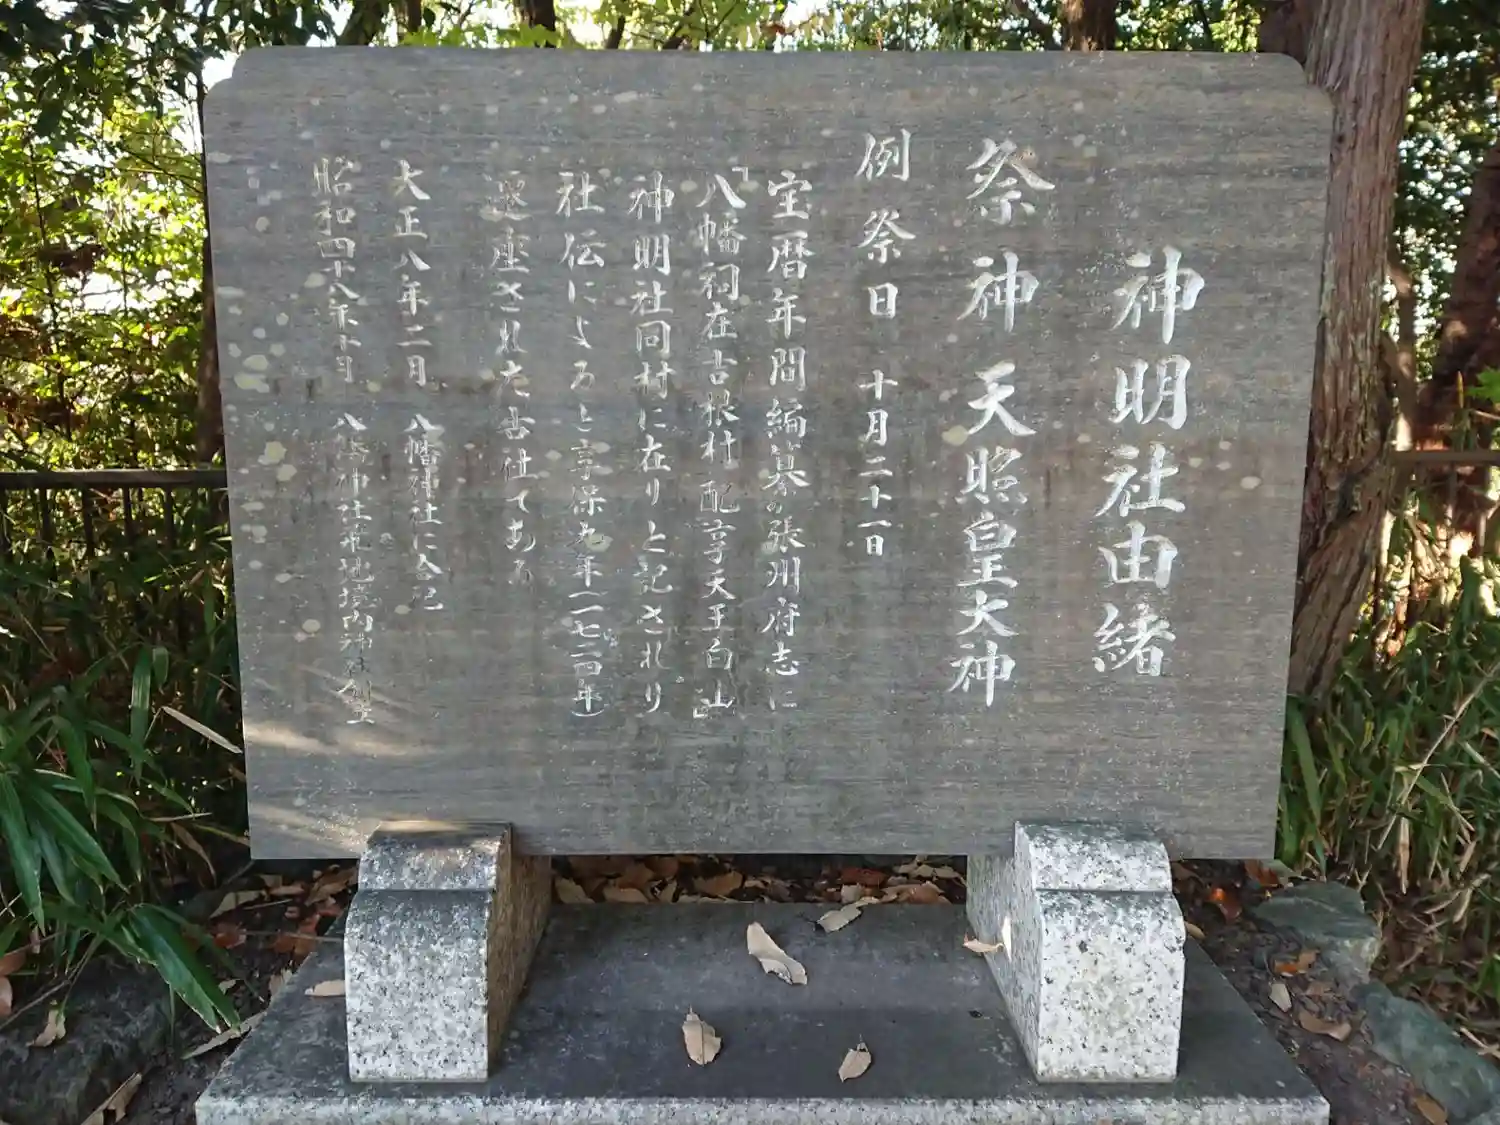 神明社由緒
祭神 天照皇大神
例祭日 十月二十一日
宝暦年間編纂の張州府志に
「八幡祠在吉根村配享天王白山」
神明社同村に在りと記されり
社伝によると享保九年(一七二四年)
遷座された古社である
大正八年二月 八幡神社に合祀
昭和四十八年十月 八幡神社飛地境内神社創立